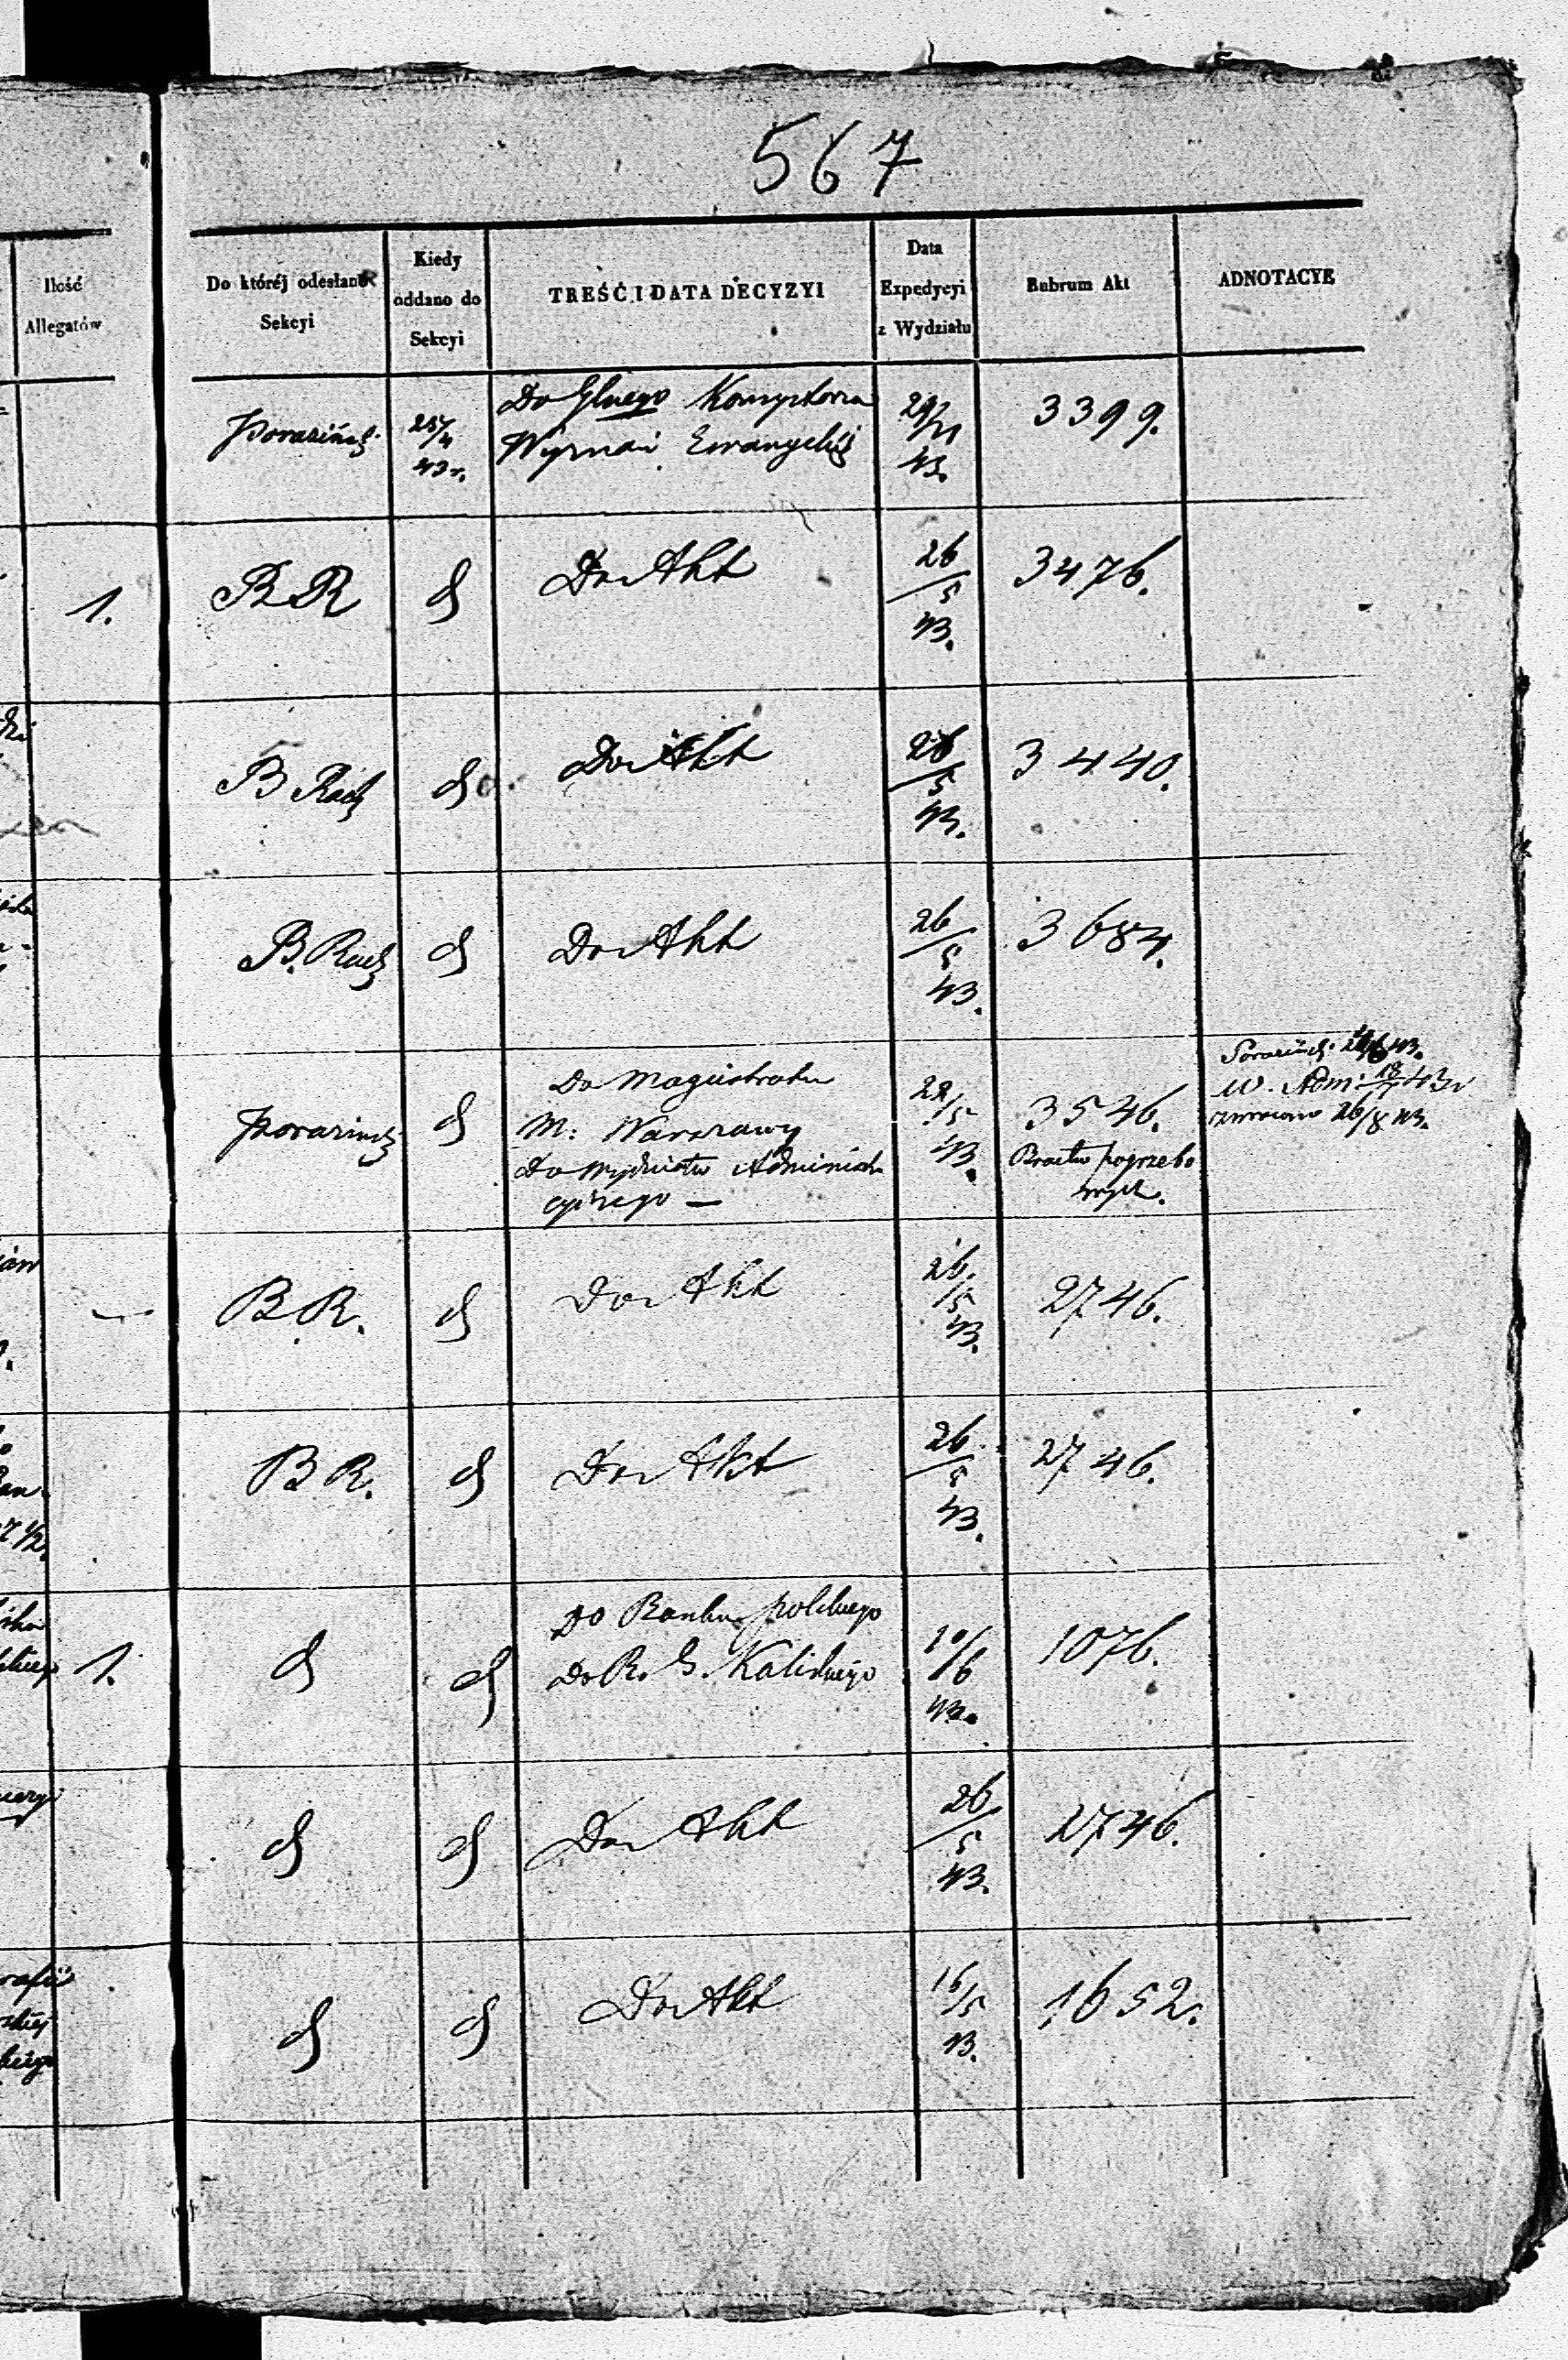 567
Ilość
Allegatów
Do któréj odesłano
Sekcyi
Kiedy
oddano do
Sekcyi
TREŚĆ I DATA DECYZYI
Data
Expedycyi
z Wydziału
Rubrum Akt
ADNOTACYE
Do Głnego Konsystorza
Wyznań Ewangelick
43.
3399.
1.
B R
Do Akt
26/5
43.
3476.
B Rach
Do Akt
26/5
43.
3440.
B. Rach
Do Akt
26/5
43.
3684.
Do Magistratu
M: Warszawy
Do Wydziału Administra
cyjnego —
22/5
43.
3546.
Bractw pogrzebo
wych.
W. Adm:
zwrócono 26/8 43.
B. R.
Do Akt
26/5
43.
2746.
B R.
Do Akt
26/5
43.
2746.
1.
Do Banku polskiego
Do R. G. Kaliskiego
10/6
43.
1076.
Do Akt
26/5
43.
2746.
Do Akt
16/5
43.
1652.